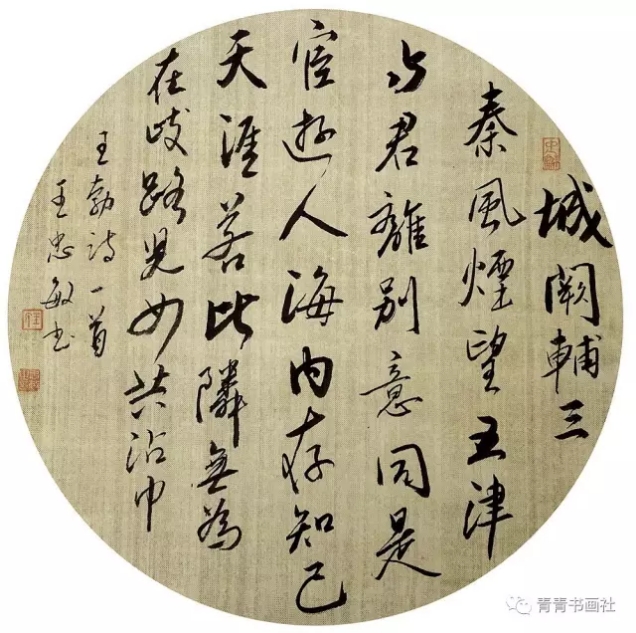 城闕輔三
秦風煙望五津
与君離别意同是
宦遊人海内存知己
天涯若比隣無為
在歧路児女共沾巾
王勃诗一首
王忠敏书
青青书画社